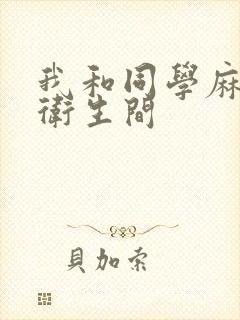 我和同學麻
衛生間
貝加索